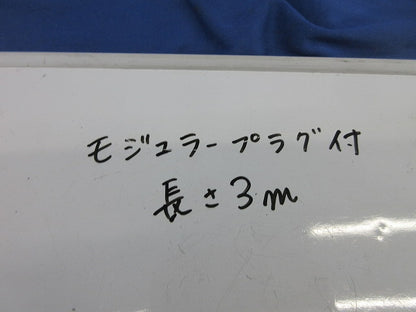 モジュラープラグ付
長さ3m